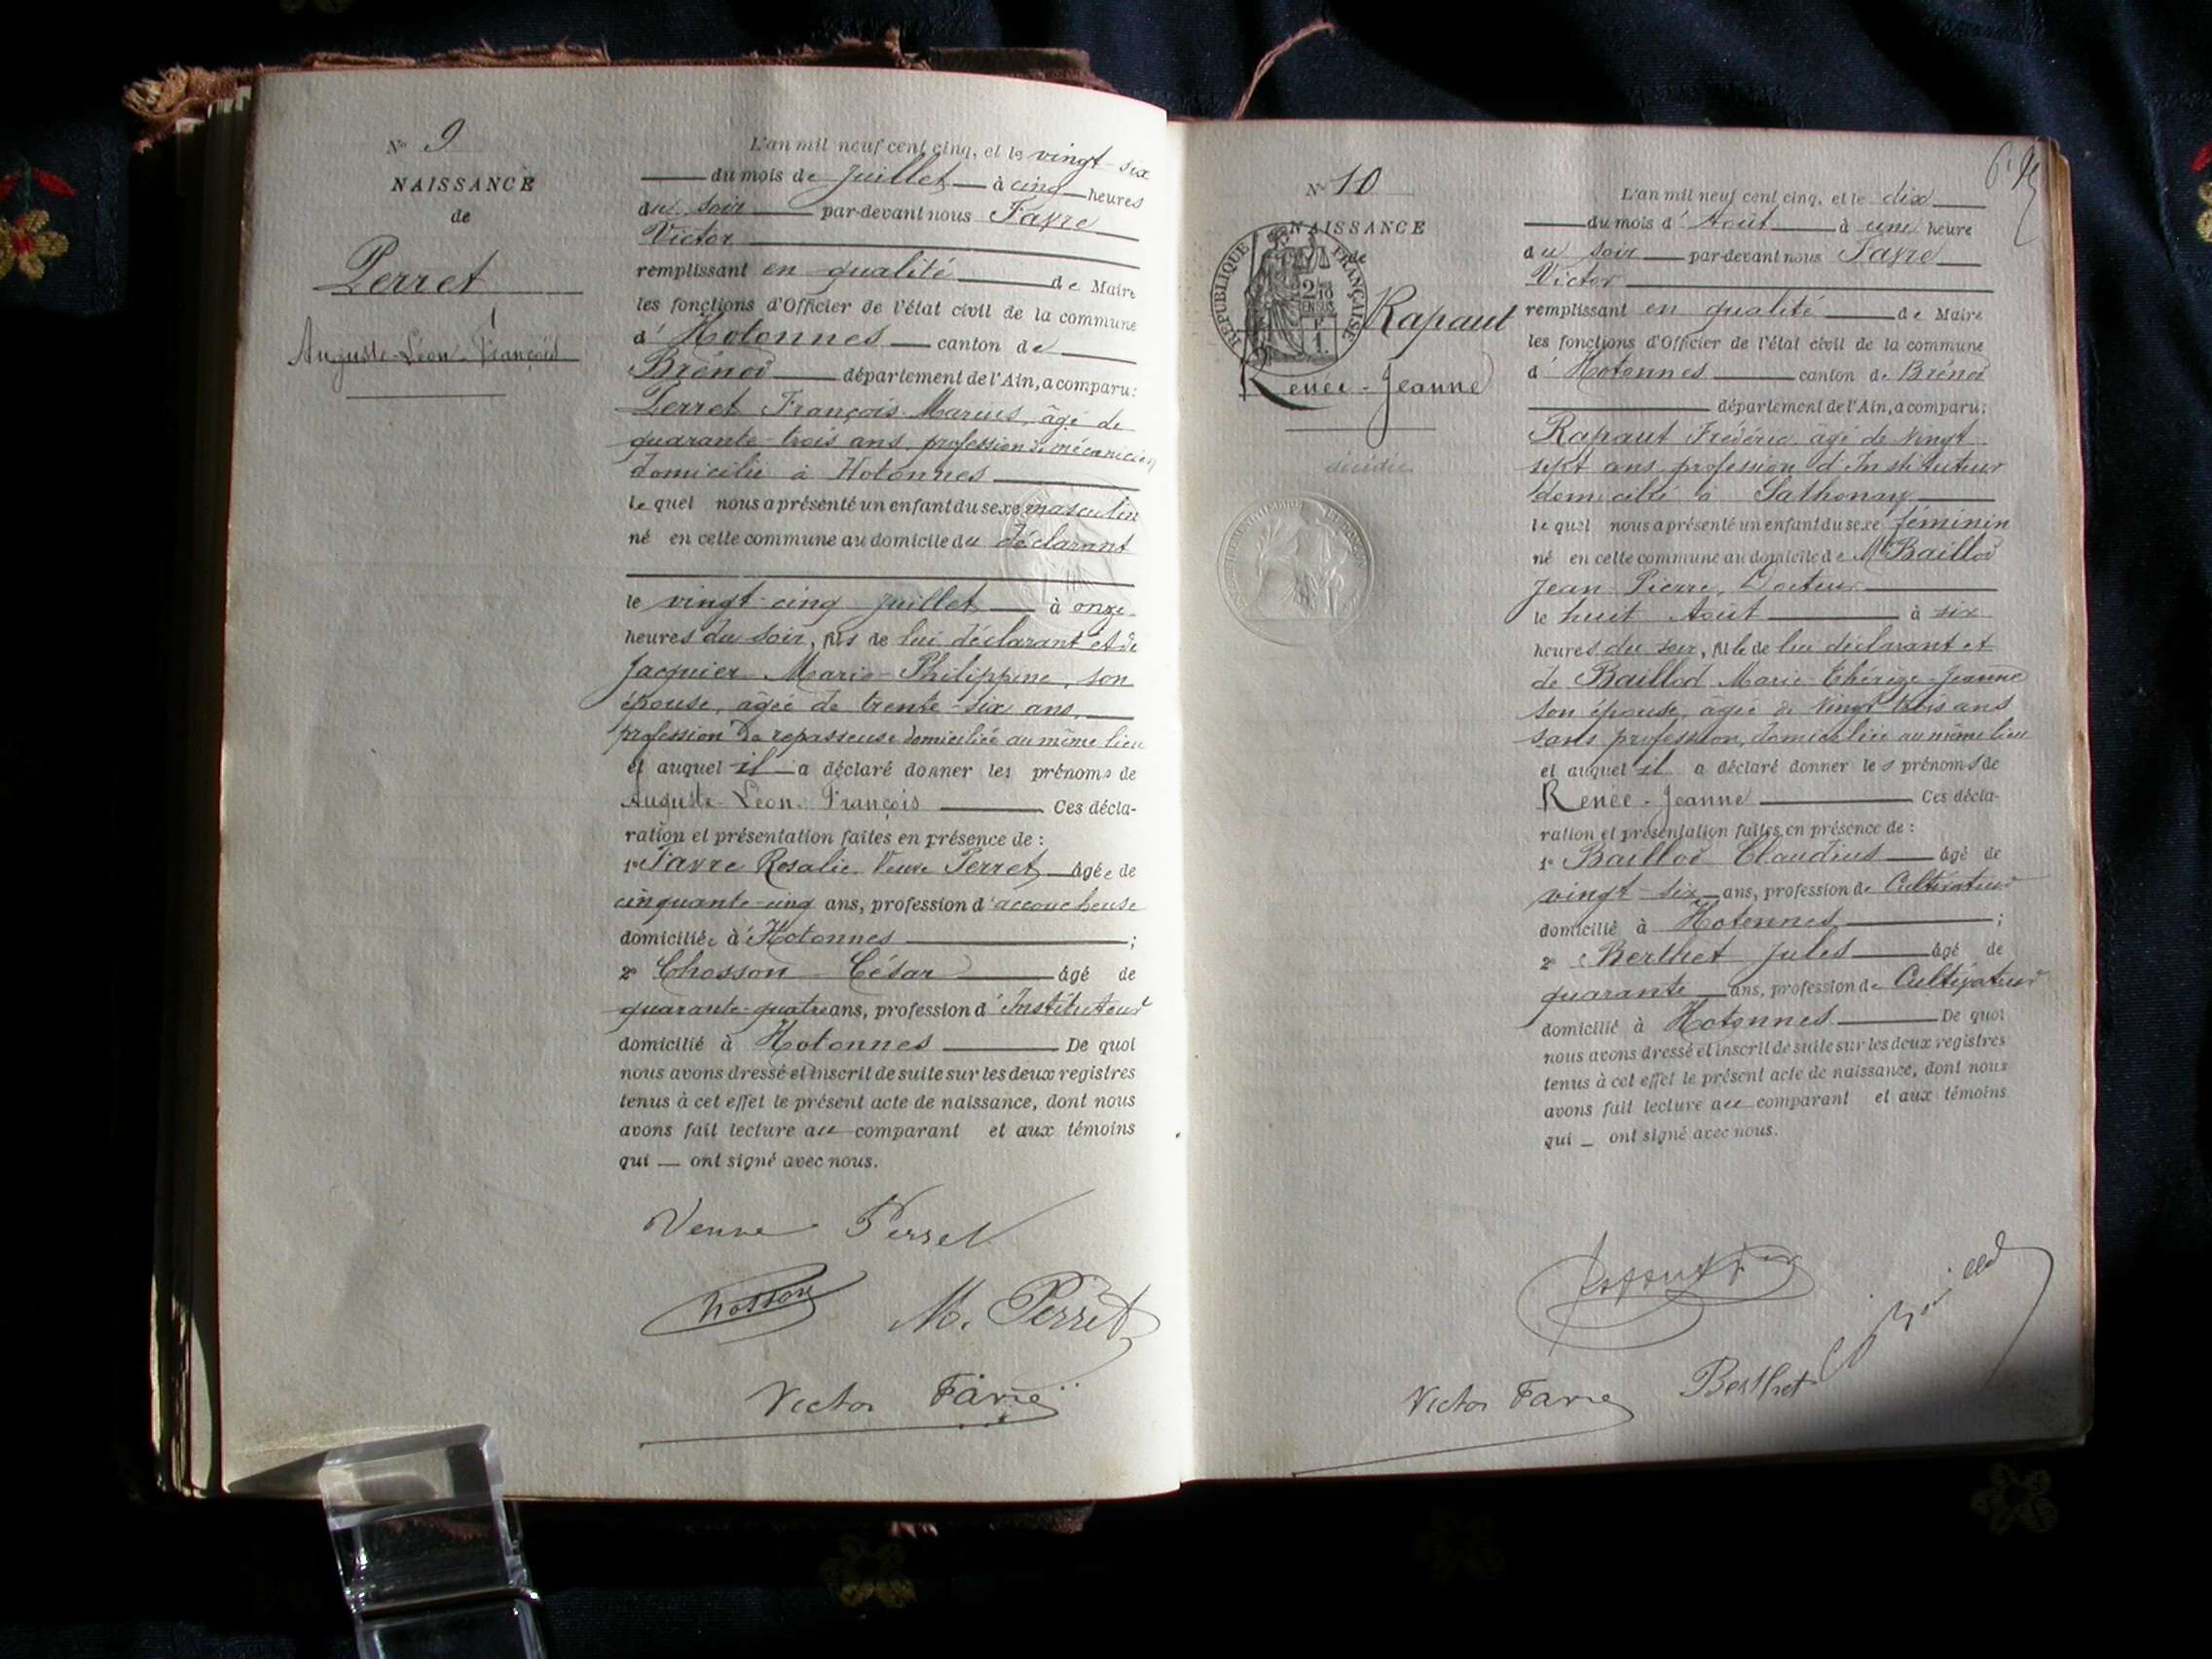 N° 9
NAISSANCE
de
Perret
Auguste-Léon-François
L'an mil neuf cent cinq, et le vingt-six
du mois de Juillet à cinq heures
du soir par-devant nous Favre
Victor
remplissant en qualité de Maire
les fonctions d'Officier de l'état civil de la commune
d' Hotonnes canton de
Brénod département de l'Ain, a comparu:
Perret François-Marius, âgé de
quarante-trois ans, profession de mécanicien
domicilié à Hotonnes
lequel nous a présenté un enfant du sexe masculin
né en cette commune au domicile du déclarant
le vingt-cinq Juillet à onze
heures du soir, fils de lui déclarant et de
Jacquier Marie-Philippine, son
épouse, âgée de trente-six ans,
profession de repasseuse domiciliée au même lieu
et auquel il a déclaré donner les prénoms de
Auguste-Léon-François Ces décla-
ration et présentation faites en présence de :
1° Favre Rosalie Veuve Perret âgée de
cinquante-cinq ans, profession d'accoucheuse
domiciliée à Hotonnes ;
2° Chosson César âgé de
quarante-quatre ans, profession d'Instituteur
domicilié à Hotonnes De quoi
nous avons dressé et inscrit de suite sur les deux registres
tenus à cet effet le présent acte de naissance, dont nous
avons fait lecture au comparant et aux témoins
qui — ont signé avec nous.
Veuve Perret
Chosson M. Perret
Victor Favre
N° 10
NAISSANCE
de
REPUBLIQUE FRANÇAISE
2/10 EN SUS
Rapaut
Renée-Jeanne
décédée
L'an mil neuf cent cinq, et le dix
du mois d'Août à une heure
du soir par-devant nous Favre
Victor
remplissant en qualité de Maire
les fonctions d'Officier de l'état civil de la commune
d' Hotonnes canton de Brénod
département de l'Ain, a comparu:
Rapaut Frédéric âgé de vingt
sept ans, profession d'Instituteur
domicilié à Sathonay
lequel nous a présenté un enfant du sexe féminin
né en cette commune au domicile de Mr Baillod
Jean-Pierre, Docteur
le huit Août à six
heures du soir, fille de lui déclarant et
de Baillod Marie-Thérèze-Jeanne
son épouse, âgée de vingt-trois ans
sans profession, domiciliée au même lieu
et auquel il a déclaré donner les prénoms de
Renée-Jeanne Ces décla-
ration et présentation faites en présence de :
1° Baillod Claudius âgé de
vingt-six ans, profession de Cultivateur
domicilié à Hotonnes ;
2° Berthet Jules âgé de
quarante ans, profession de Cultivateur
domicilié à Hotonnes De quoi
nous avons dressé et inscrit de suite sur les deux registres
tenus à cet effet le présent acte de naissance, dont nous
avons fait lecture au comparant et aux témoins
qui — ont signé avec nous.
Victor Favre Berthet C Baillod